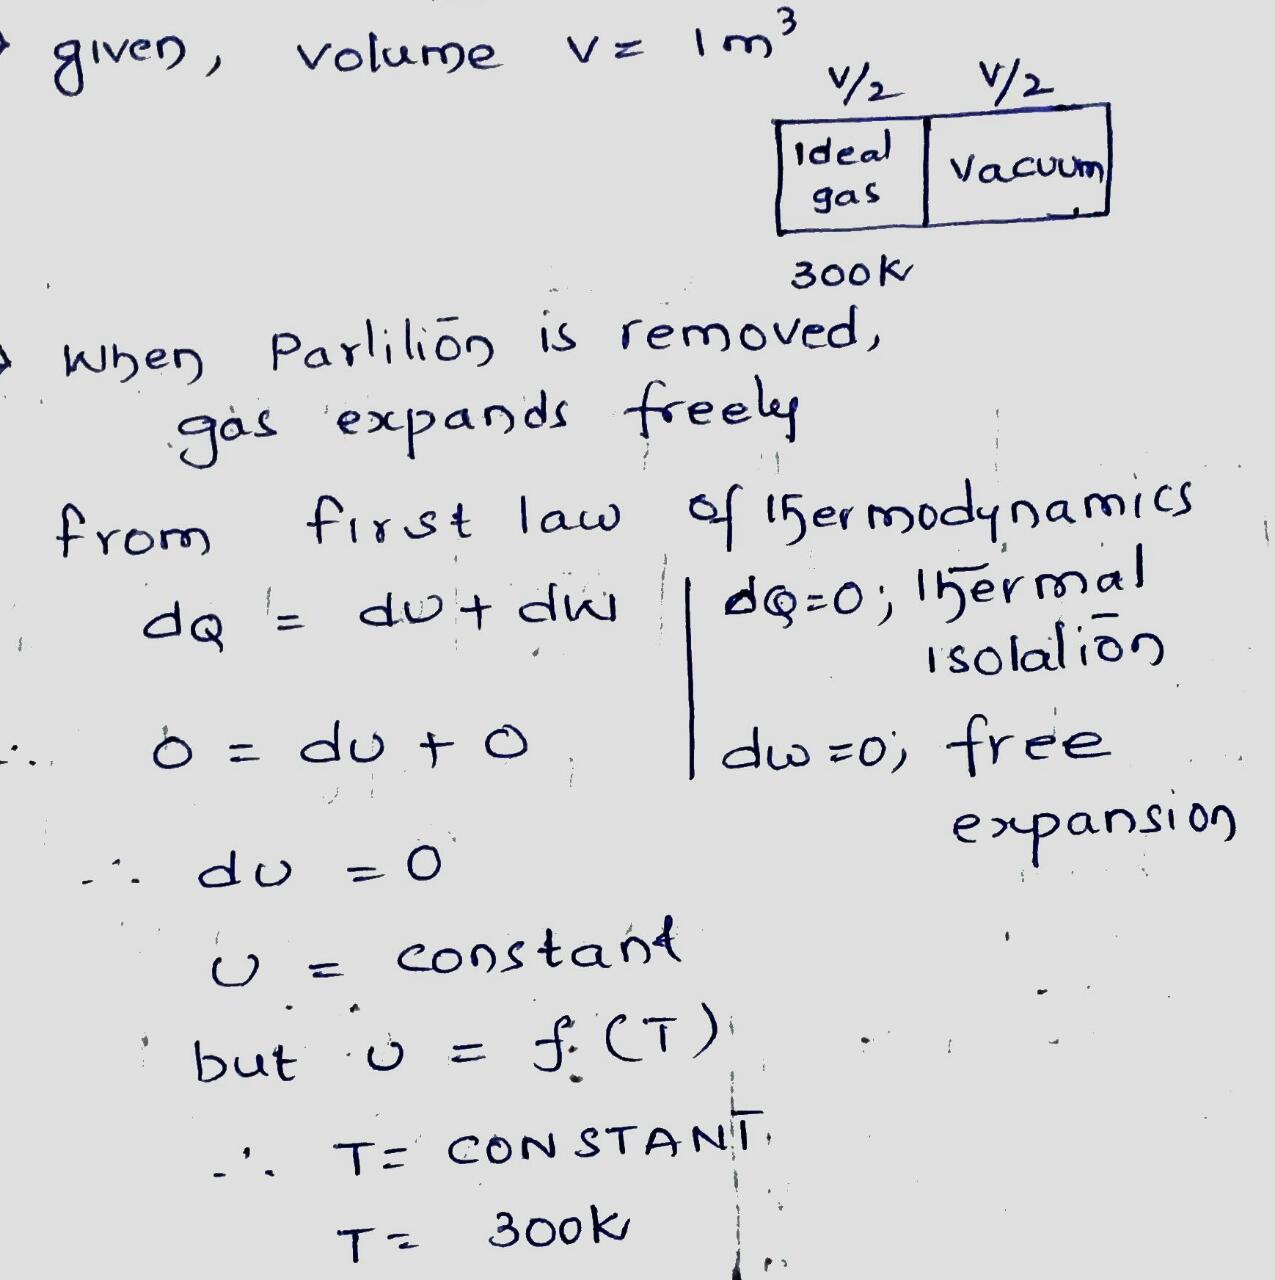 given, volume V = 1m³
V/2 V/2
Ideal gas
Vacuum
300K
When Partition is removed,
gas expands freely
from first law of thermodynamics
dQ = dU + dW
dQ=0; thermal
isolation
∴ 0 = dU + 0
dW=0; free
expansion
∴ dU = 0
U = constant
but U = f(T)
∴ T = CONSTANT.
T = 300K